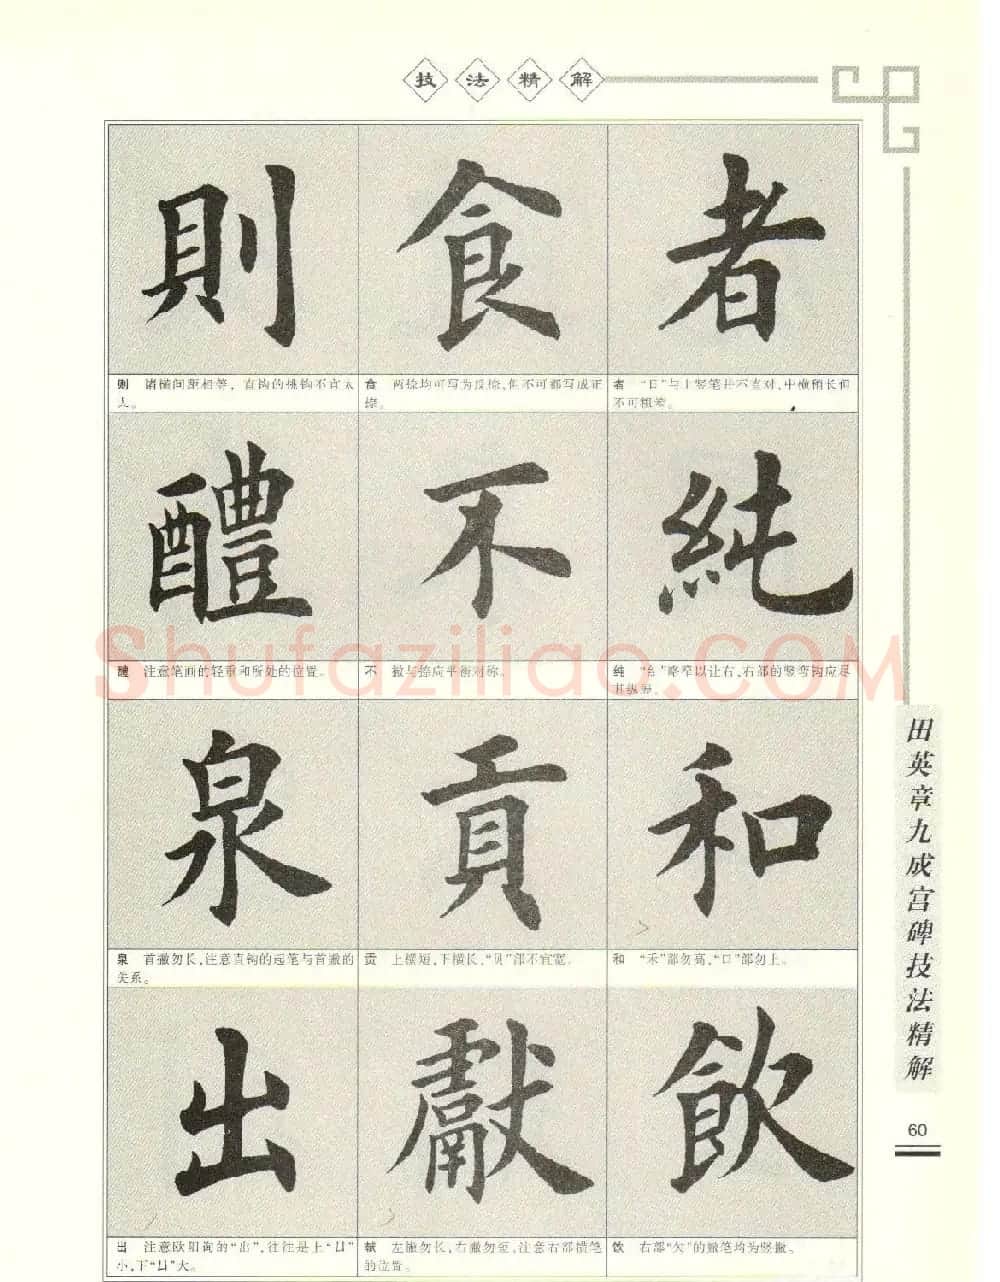 技法精解
則 食 者
则 诸横间距相等，直钩的挑钩不宜太
大。
食 两捺均可写为反捺，但不可都写成正
捺。
者 “日”与上竖笔并不直对，中横稍长但
不可粗笨。
醴 不 純
醴 注意笔画的轻重和所处的位置。
不 撇与捺应平衡对称。
纯 “纟”略窄以让右，右部的竖弯钩应尽
其纵势。
泉 貢 和
泉 首撇勿长，注意直钩的起笔与首撇的
关系。
贡 上横短，下横长，“贝”部不宜宽。
和 “禾”部勿高，“口”部勿上。
出 獻 飲
出 注意欧阳询的“出”，往往是上“凵”
小，下“凵”大。
献 左撇勿长，右撇勿短，注意右部横笔
的位置。
饮 右部“欠”的撇笔均为竖撇。
田英章九成宫碑技法精解
60
Shufaziliao.COM